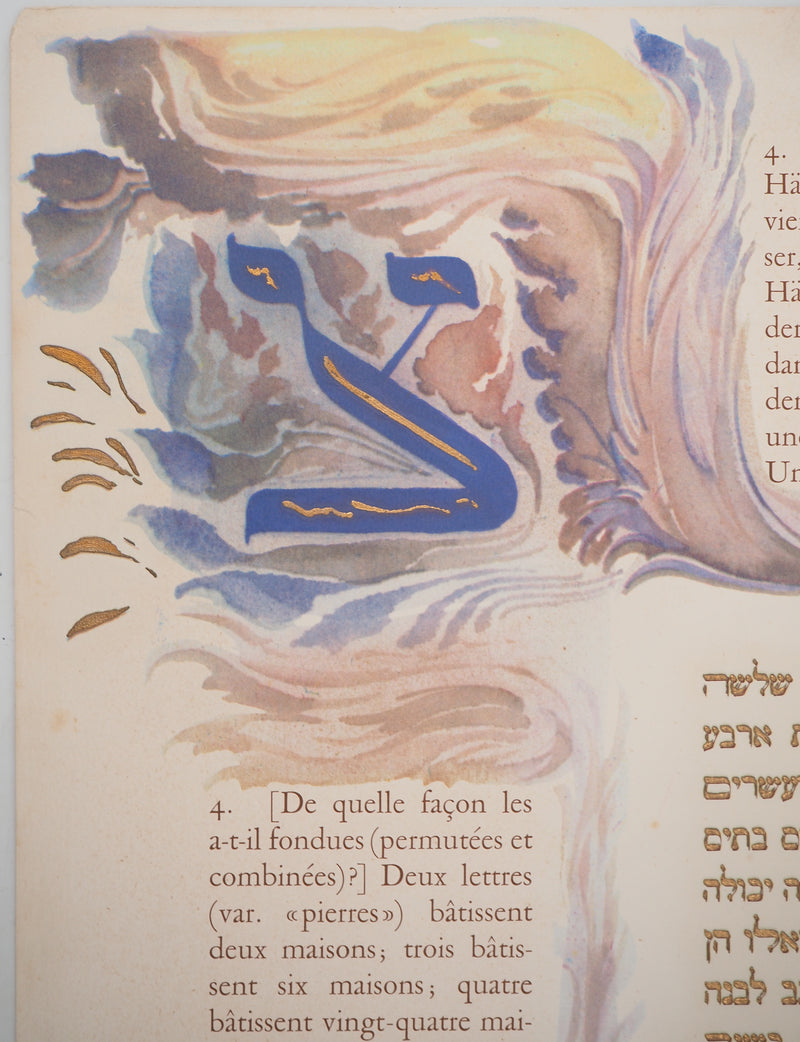 צ
4.
Hä
ser,
Hä
4. [De quelle façon les
a-t-il fondues (permutées et
combinées)?] Deux lettres
(var. «pierres») bâtissent
deux maisons; trois bâtis-
sent six maisons; quatre
bâtissent vingt-quatre mai-
שלשה
ארבע
עשרים
בתים
יכולה
אלו הן
לבנה